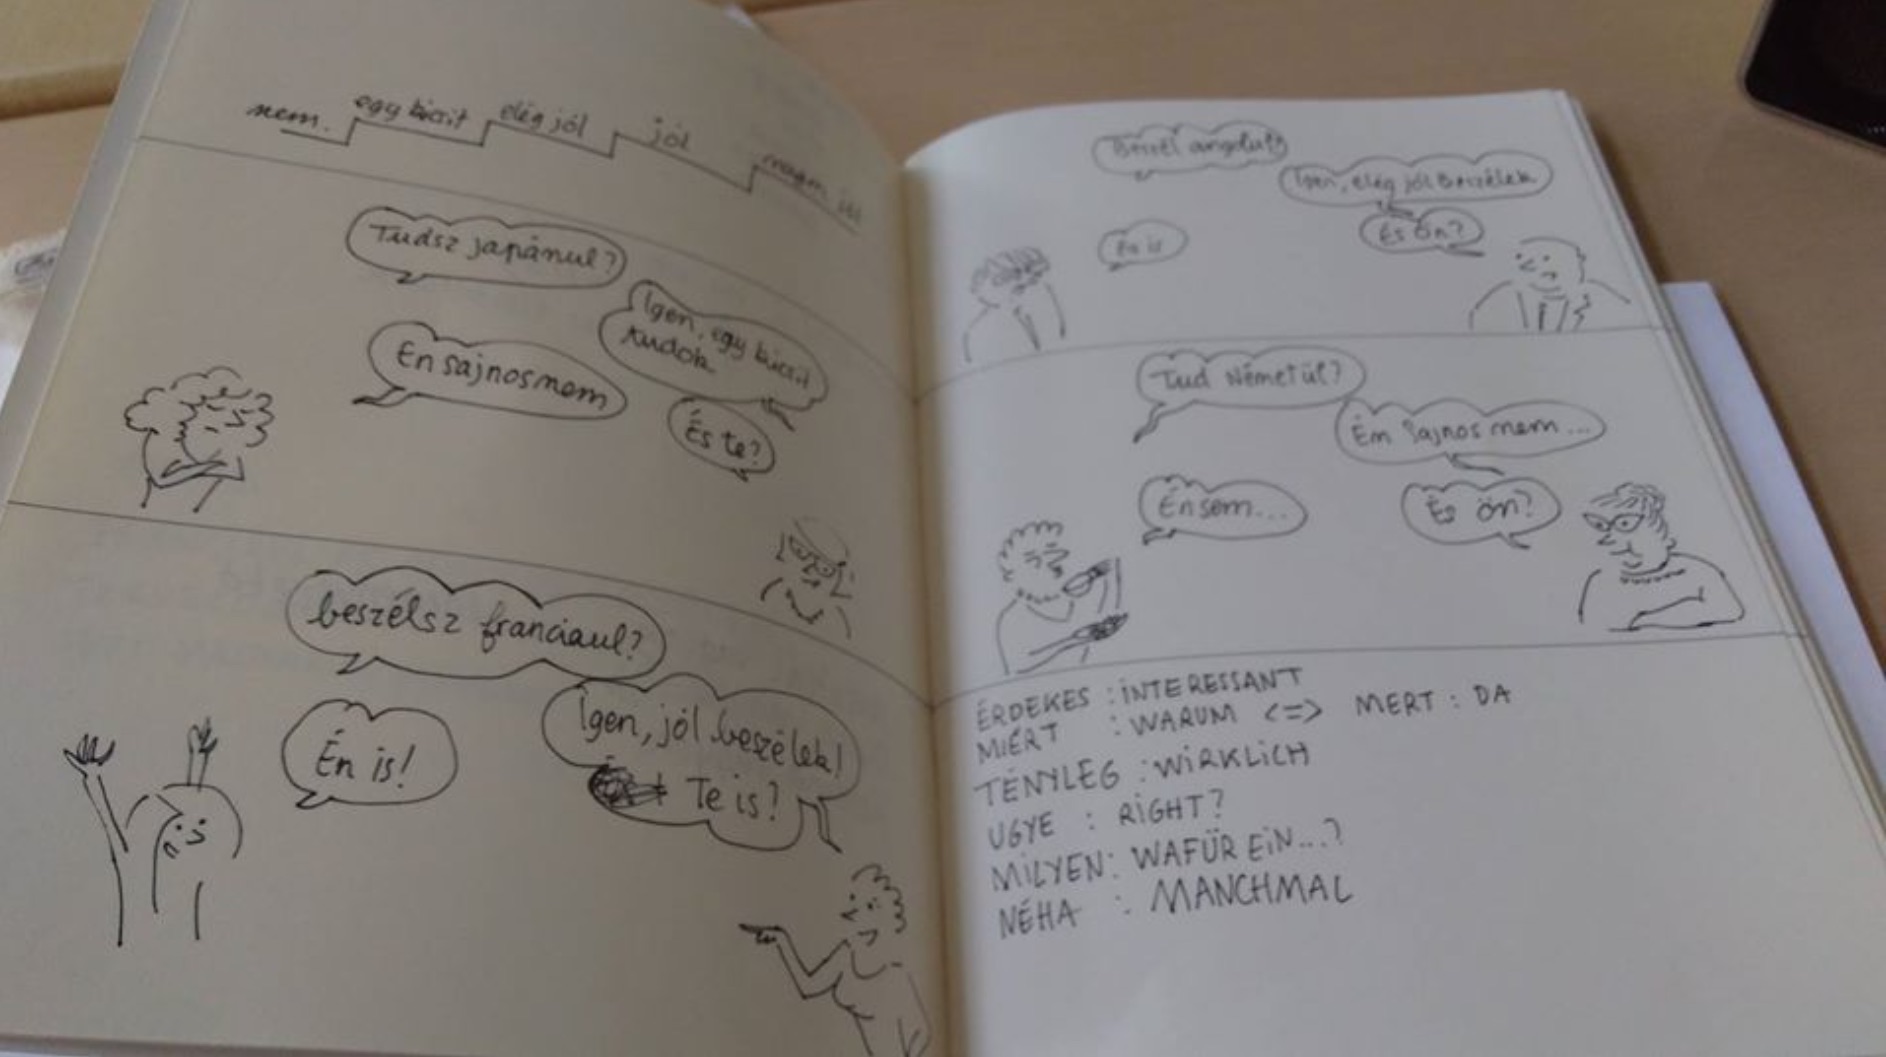 nem.
egy kicsit
elég jól
jól
nagyon jól
Tudsz japánul?
Igen, egy kicsit
tudok.
És te?
Én sajnos nem
beszélsz franciaul?
Igen, jól beszélek!
Te is?
Én is!
Beszél angolul?
Igen, elég jól Beszélek
És ön?
Én is
Tud Németül?
Én Sajnos nem...
És ön?
Én sem...
ÉRDEKES : INTERESSANT
MIÉRT : WARUM <=> MERT : DA
TÉNYLEG : WIRKLICH
UGYE : RIGHT?
MILYEN : WAFÜR EIN...?
NÉHA : MANCHMAL